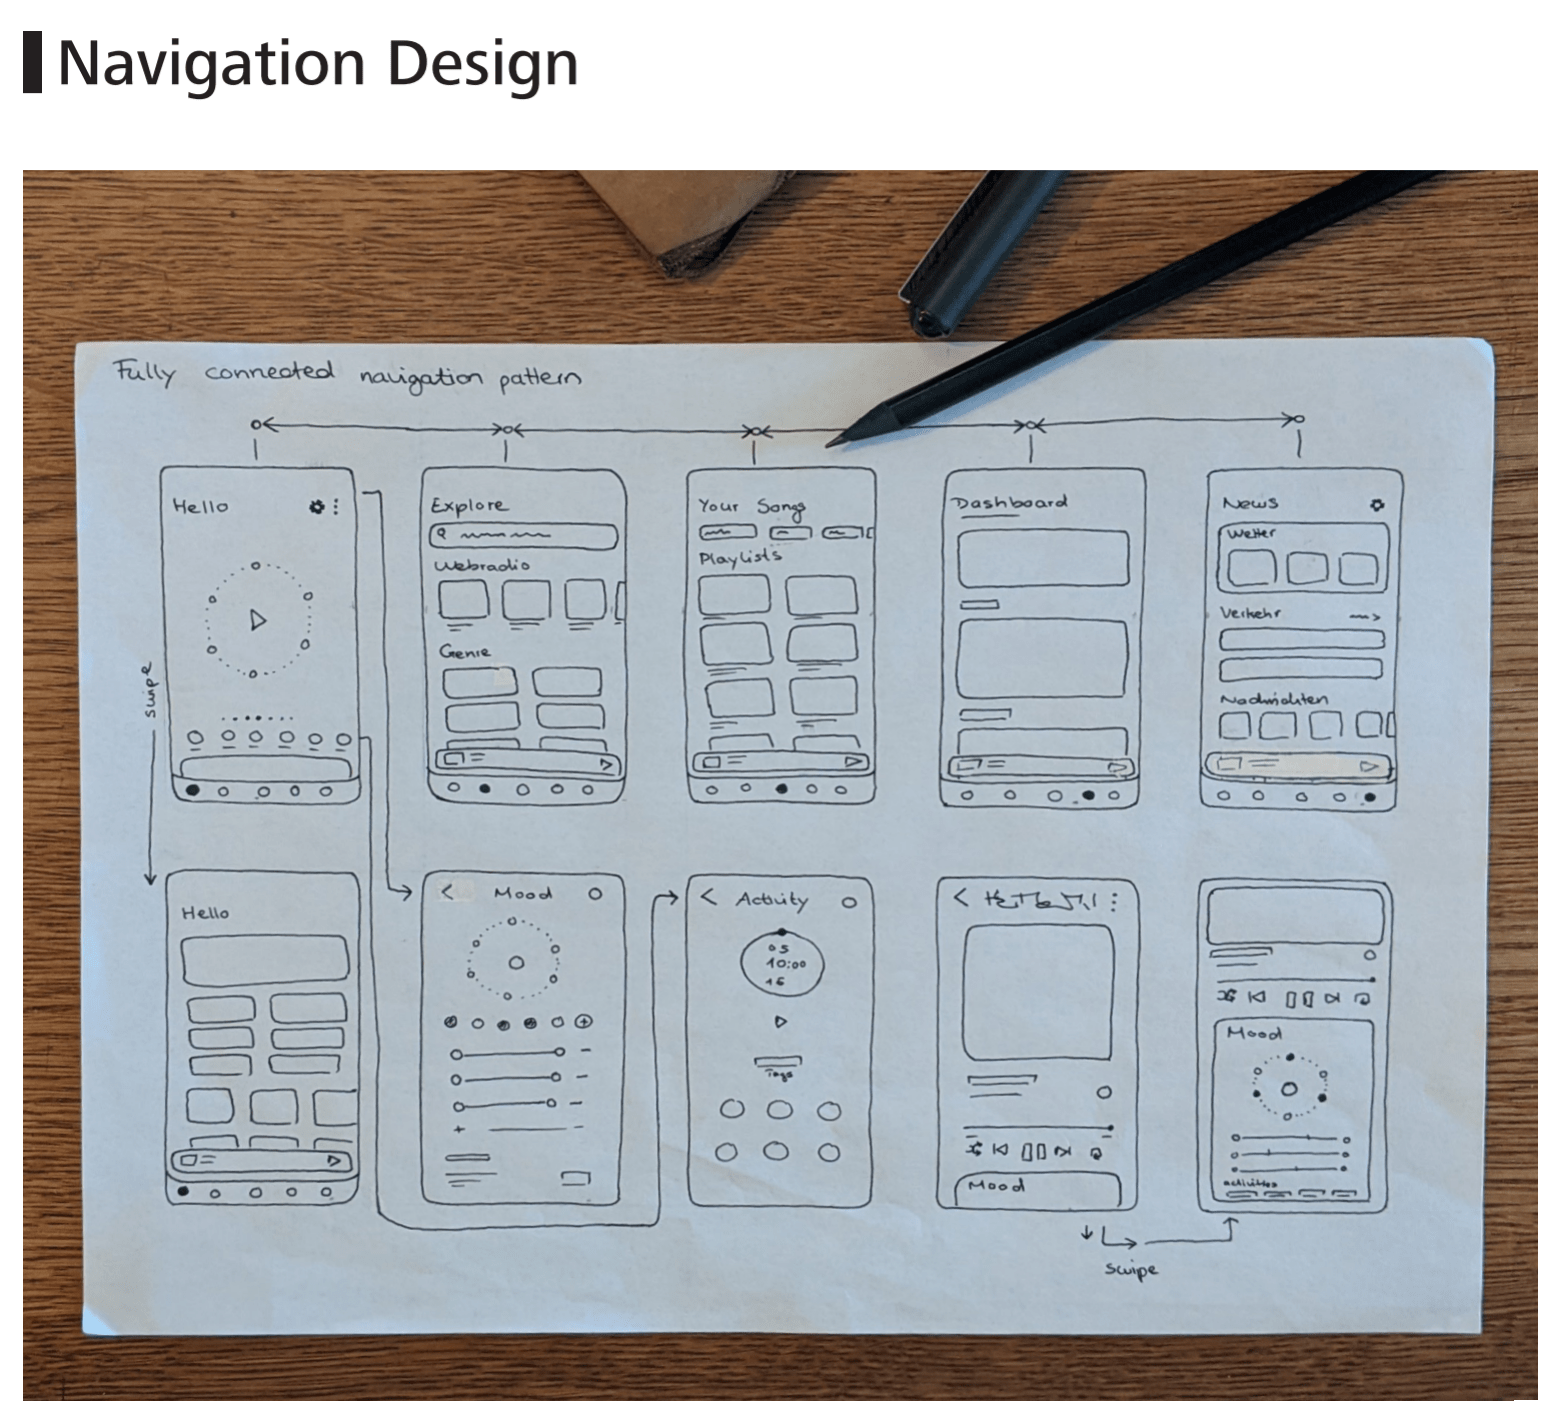 Navigation Design
Fully connected navigation pattern
Hello
Explore
Webradio
Genre
Your Songs
Playlists
Dashboard
News
Wetter
Verkehr
Nachrichten
swipe
Hello
Mood
Activity
05
10:00
15
Tags
Mood
Mood
activities
swipe